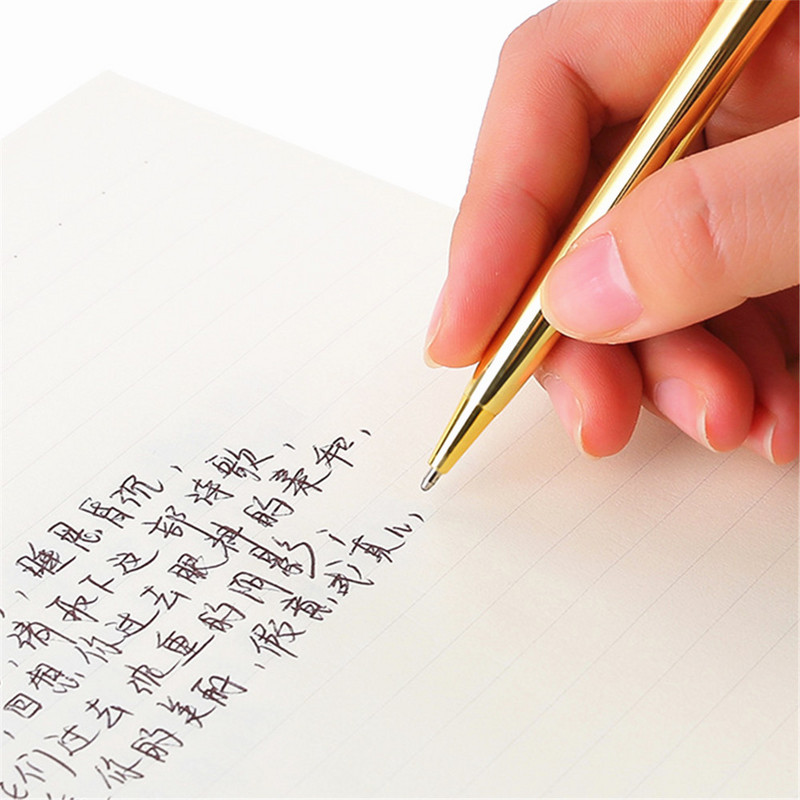 ，睡思昏沉，
，请取下这部诗歌，
，回想你过去眼神的柔和，
们过去浓重的阴影；
你的美丽，假意或真心，